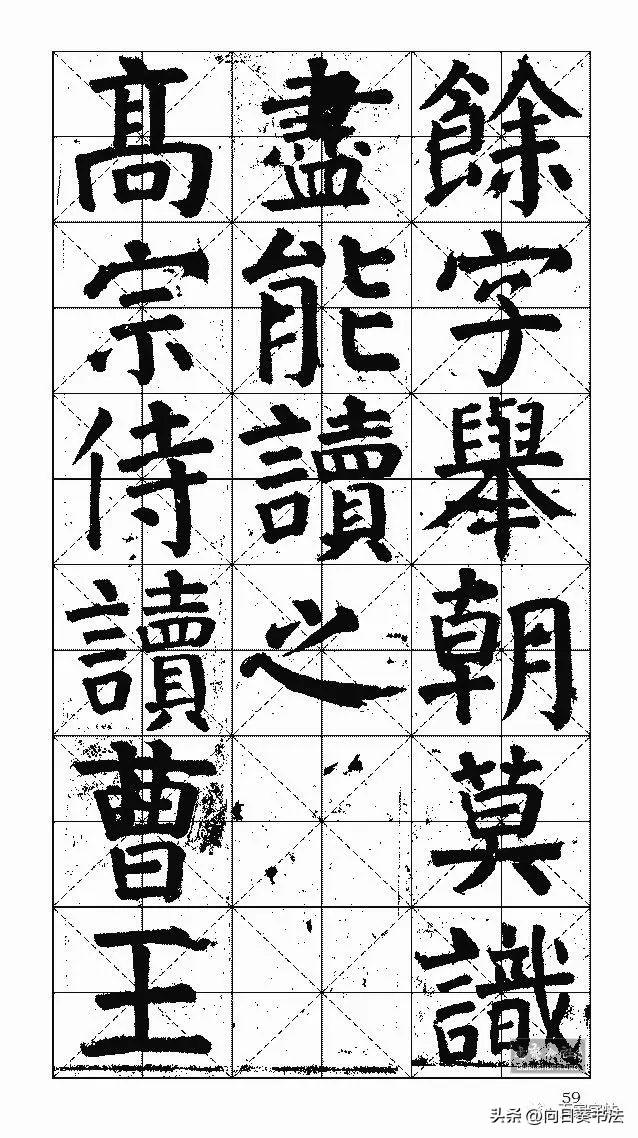 餘字舉朝莫識
盡能讀之
高宗侍讀曹王
59
头条 @向日葵书法